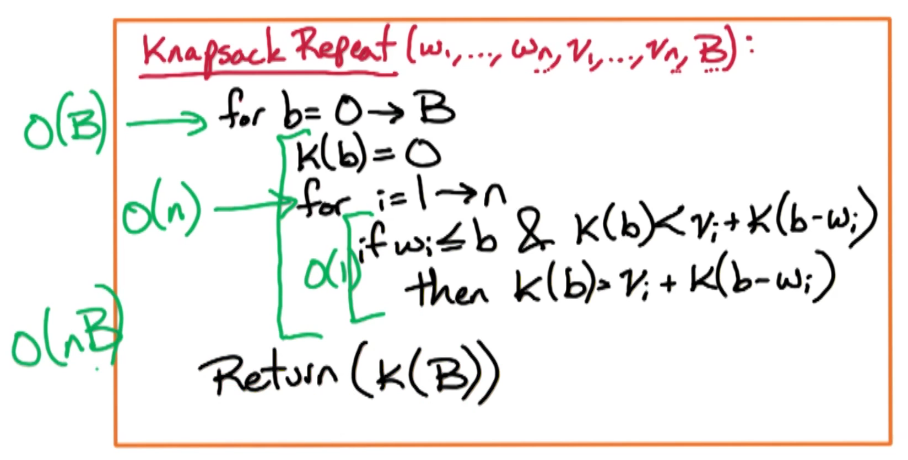 Knapsack Repeat (w₁,..., wₙ, v₁,..., vₙ, B):
O(B) → for b = 0 → B
K(b) = 0
O(n) → for i = 1 → n
if wᵢ ≤ b & K(b) < vᵢ + K(b-wᵢ)
O(1)
then K(b) = vᵢ + K(b-wᵢ)
O(nB)
Return (K(B))